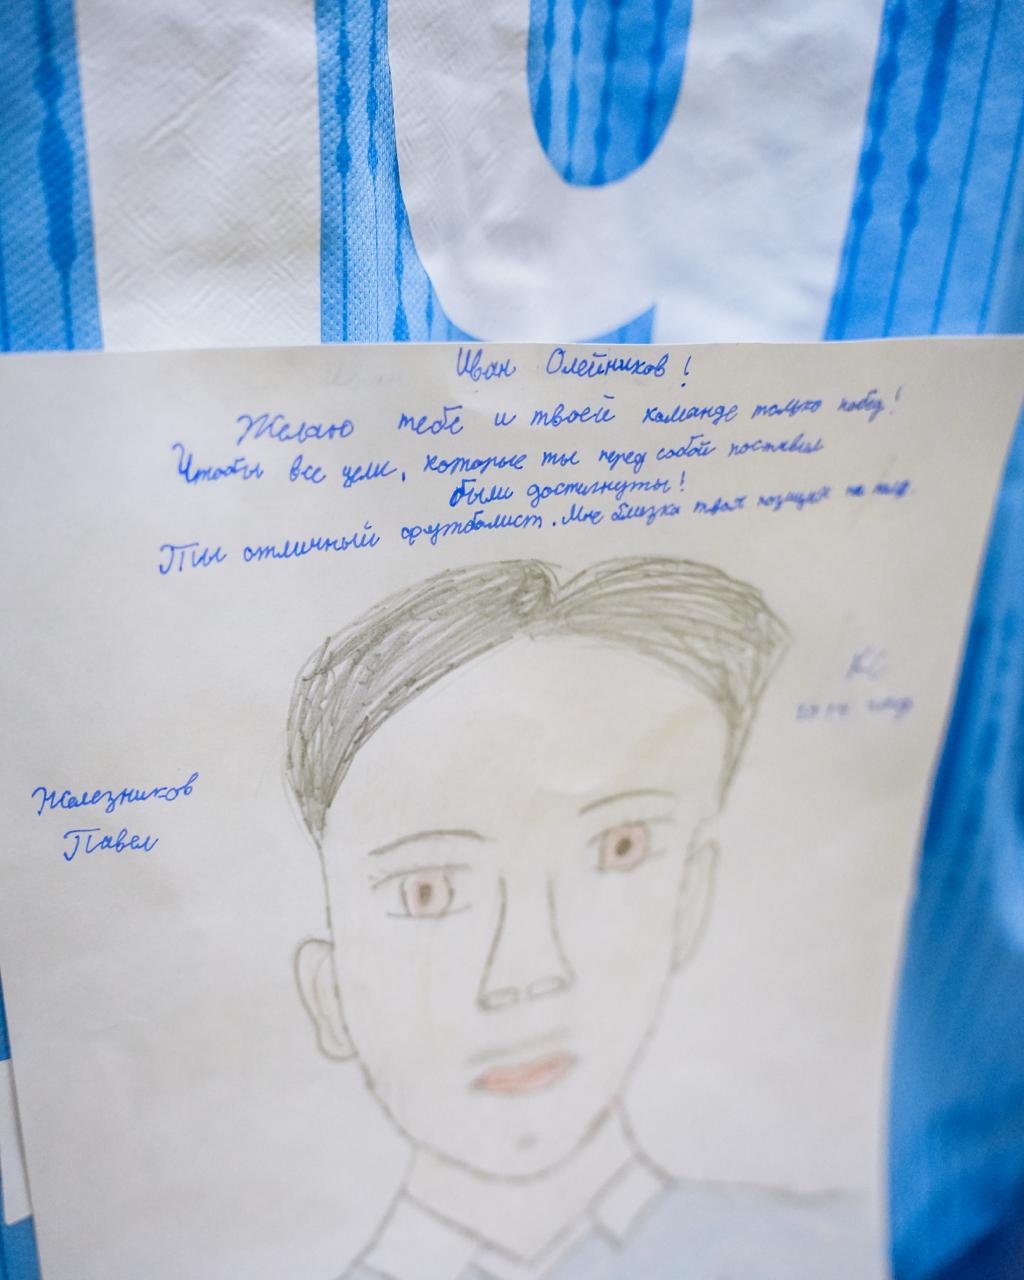 19
Иван Олейников!
Желаю тебе и твоей команде только побед!
Чтобы все цели, которые ты перед собой поставил
были достигнуты!
Ты отличный футболист. Мне близка твоя позиция на
КС
Железников
Павел